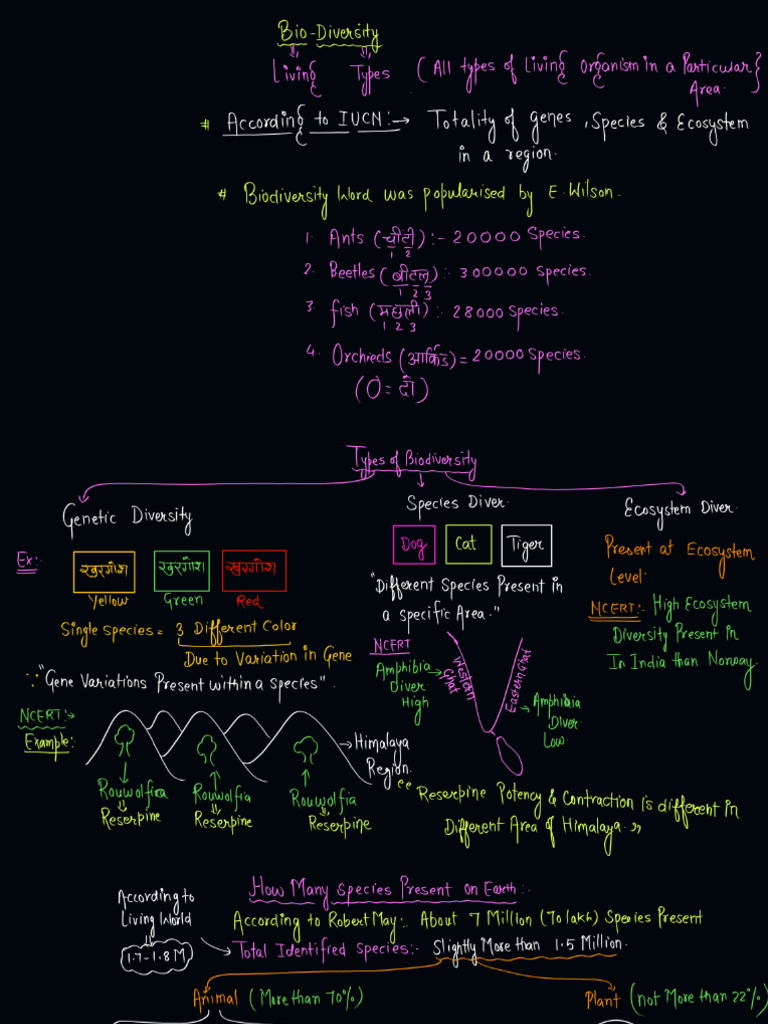 Bio-Diversity
Living Types (All types of Living Organism in a Particular Area.}
# According to IUCN:→ Totality of genes, Species & Ecosystem
in a region.
# Biodiversity Word was popularised by E. Wilson.
1. Ants (चीटी) :- 20000 Species.
1 2
2. Beetles (बीटल) :- 300000 Species.
1 2 3
3. fish (मछली) :- 28000 Species.
1 2 3
4. Orchieds (आर्किड) = 20000 Species.
(O = दो)
Types of Biodiversity
Genetic Diversity
Ex:-
खरगोश खरगोश खरगोश
Yellow Green Red
Single species = 3 Different Color
Due to Variation in Gene
∵ "Gene Variations Present within a species".
NCERT:→
Example:
Himalaya
Region.
Rouwolfira Rouwolfia Rouwolfia
Reserpine Reserpine Reserpine
"Reserpine Potency & Contraction is different in
Different Area of Himalaya."
Species Diver.
Dog Cat Tiger
"Different Species Present in
a specific Area."
NCERT
Amphibia
Diver
High
Western Ghat
Eastern Ghat
Amphibia
Diver
Low
Ecosystem Diver.
Present at Ecosystem
Level.
NCERT:- High Ecosystem
Diversity Present in
In India than Norway.
How Many Species Present on Earth:-
According to
Living World
1.7-1.8M
According to Robert May:. About 7 Million (70 lakh) Species Present
Total Identified Species:- Slightly More than 1.5 Million.
Animal (More than 70%)
Plant (not More than 22%)